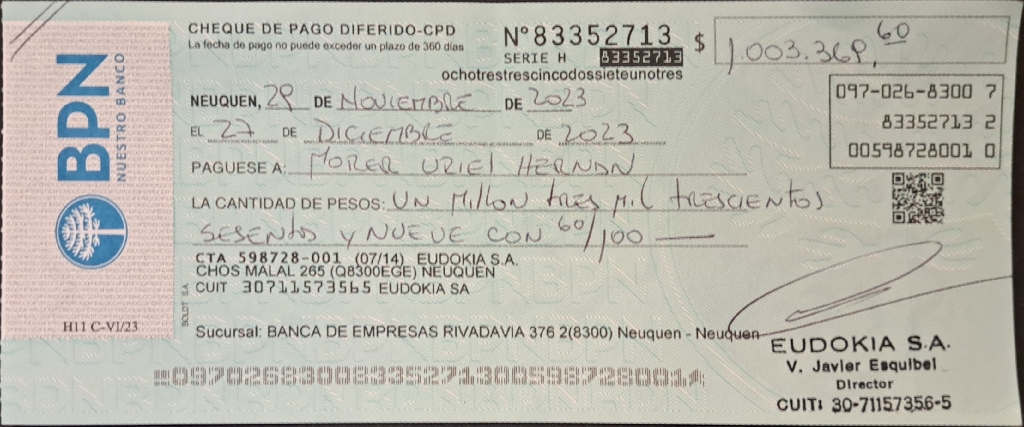 CHEQUE DE PAGO DIFERIDO-CPD
La fecha de pago no puede exceder un plazo de 360 días
N°83352713
SERIE H 83352713
ochotrestrescincodossieteunotres
$ 1.003.369,60
BPN
NUESTRO BANCO
NEUQUEN, 29 DE NOVIEMBRE DE 2023
EL 27 DE DICIEMBRE DE 2023
097-026-8300 7
83352713 2
00598728001 0
PAGUESE A: MORER URIEL HERNAN
LA CANTIDAD DE PESOS: UN MILLON TRES MIL TRESCIENTOS
SESENTA Y NUEVE CON 60/100
CTA 598728-001 (07/14) EUDOKIA S.A.
CHOS MALAL 265 (Q8300EGE) NEUQUEN
CUIT 30711573565 EUDOKIA SA
BOLDT SA
H11 C-VI/23
Sucursal: BANCA DE EMPRESAS RIVADAVIA 376 2(8300) Neuquen - Neuquen
EUDOKIA S.A.
V. Javier Esquibel
Director
CUIT: 30-71157356-5
097026830083352713005987280014